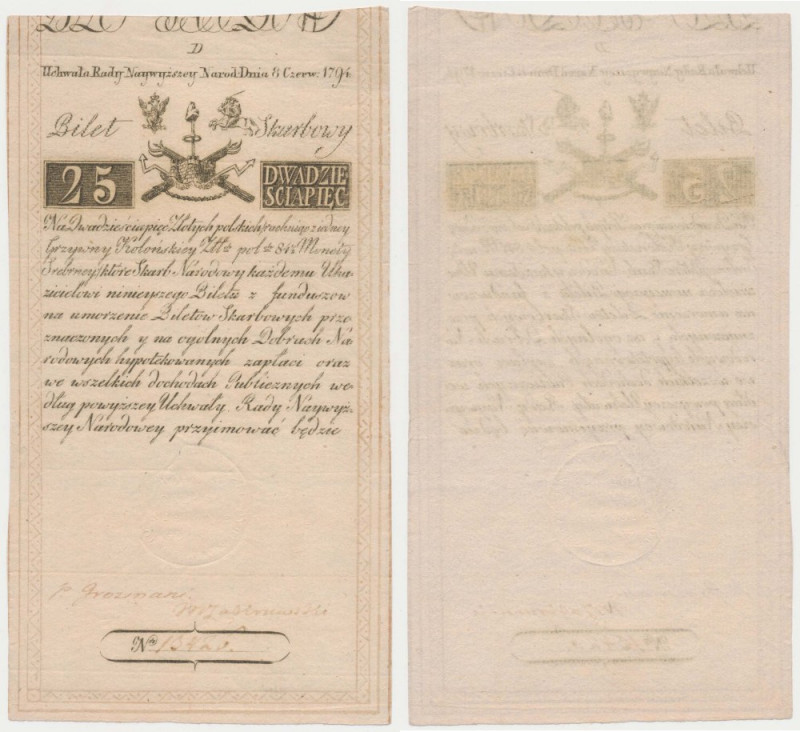 D
Uchwała Rady Naywyższey Narod: Dnia 8 Czerw: 1794.
Bilet Skarbowy
25 DWADZIE
ŚCIAPIĘĆ
Na Dwadzieściapięć Złotych polskich rachuiąc z iedney
Grzywny Kolońskiey Złt: pol: 84½ Monety
Srebrney, które Skarb Narodowy każdemu Uka
zicielowi ninieyszego Biletu z funduszow
na umorzenie Biletów Skarbowych prze
znaczonych y na ogolnych Dobrach Na
rodowych hypotekowanych zapłaci oraz
we wszelkich dochodach Publicznych we
dług powyższey Uchwały Rady Naywyż
szey Narodowey przyimować będzie
P Grozmani
No